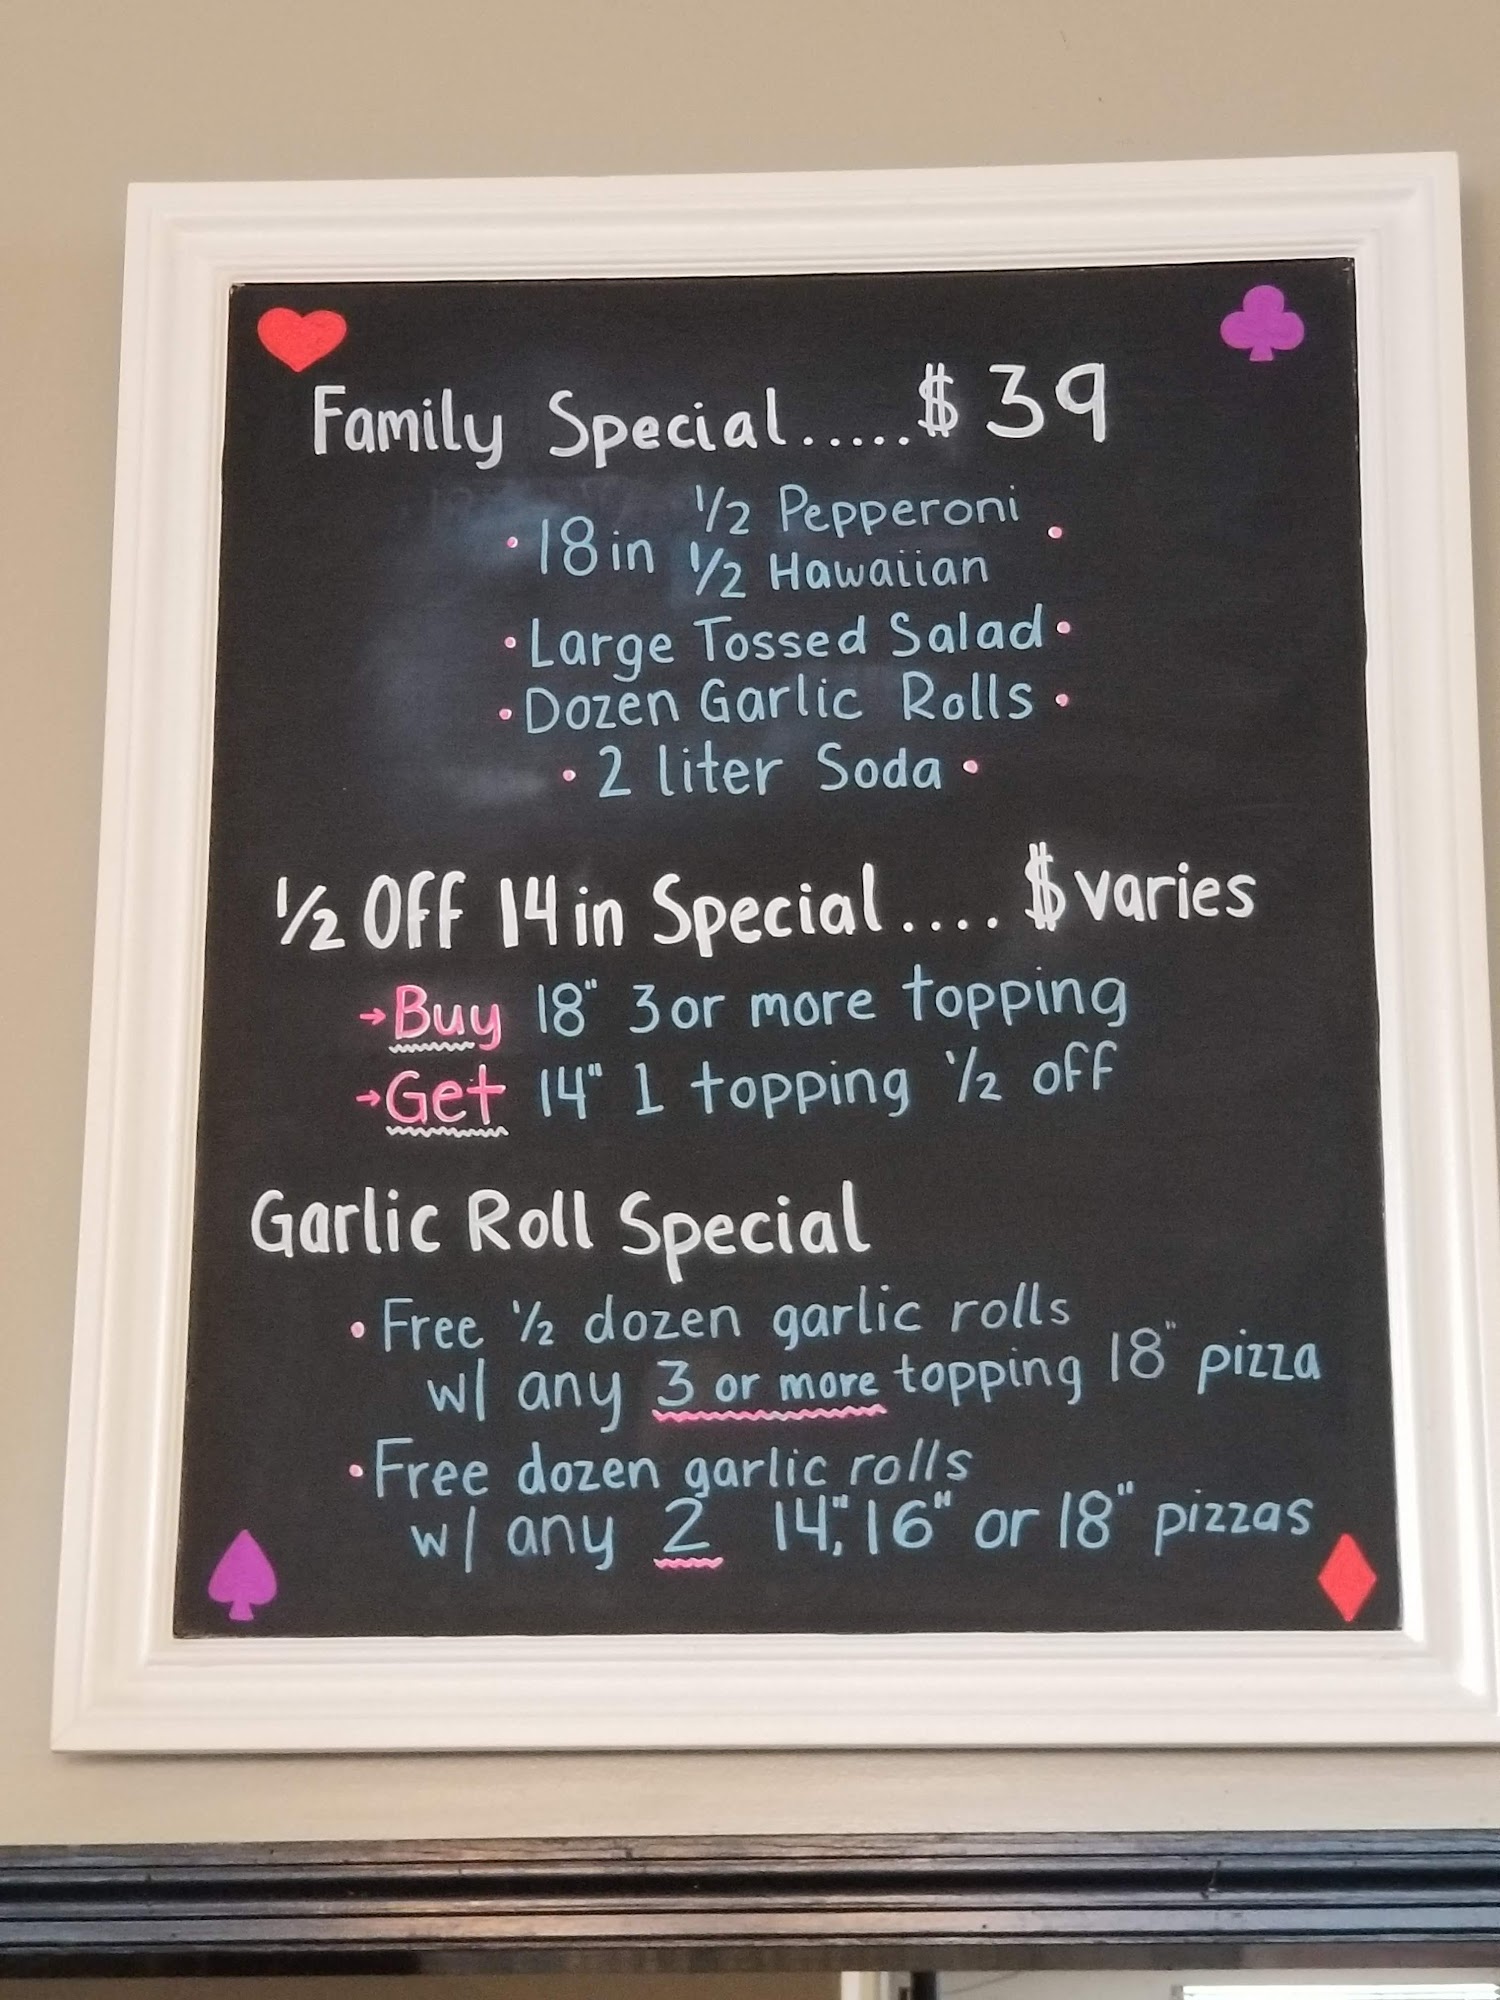 Family Special.....$39
• 18in 1/2 Pepperoni •
1/2 Hawaiian
• Large Tossed Salad •
• Dozen Garlic Rolls •
• 2 liter Soda •
1/2 OFF 14in Special.... $varies
→Buy 18" 3 or more topping
→Get 14" 1 topping 1/2 off
Garlic Roll Special
• Free 1/2 dozen garlic rolls
w/ any 3 or more topping 18" pizza
• Free dozen garlic rolls
w/ any 2 14", 16" or 18" pizzas